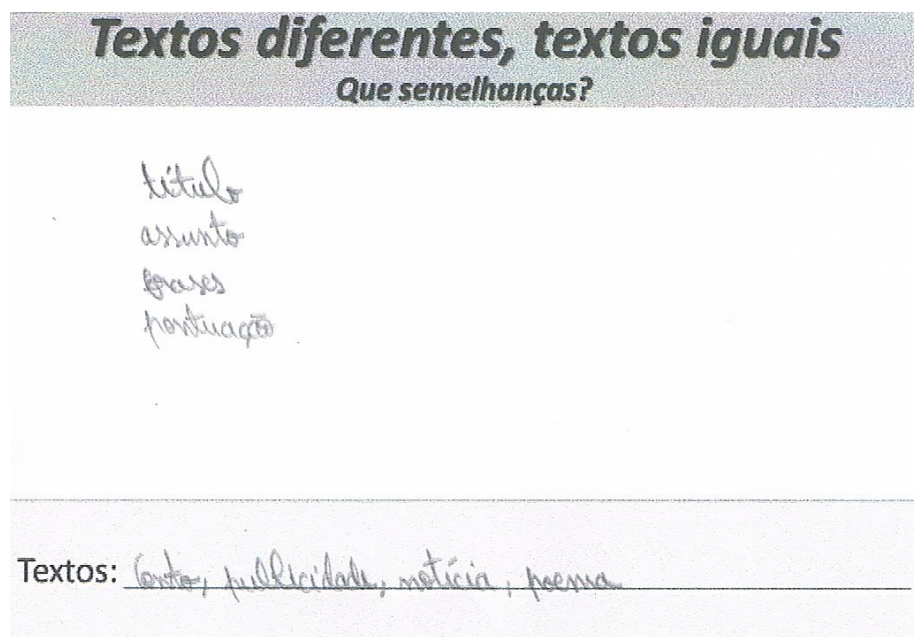 Textos diferentes, textos iguais
Que semelhanças?
título
assunto
frases
pontuação
Textos: Conto, publicidade, notícia, poema